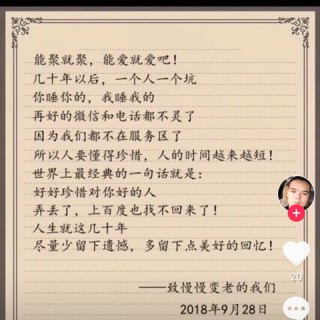 能聚就聚，能爱就爱吧！
几十年以后，一个人一个坑
你睡你的，我睡我的
再好的微信和电话都不灵了
因为我们都不在服务区了
所以人要懂得珍惜，人的时间越来越短！
世界上最经典的一句话就是：
好好珍惜对你好的人
弄丢了，上百度也找不回来了！
人生就这几十年
尽量少留下遗憾，多留下点美好的回忆！
——致慢慢变老的我们
2018年9月28日
20